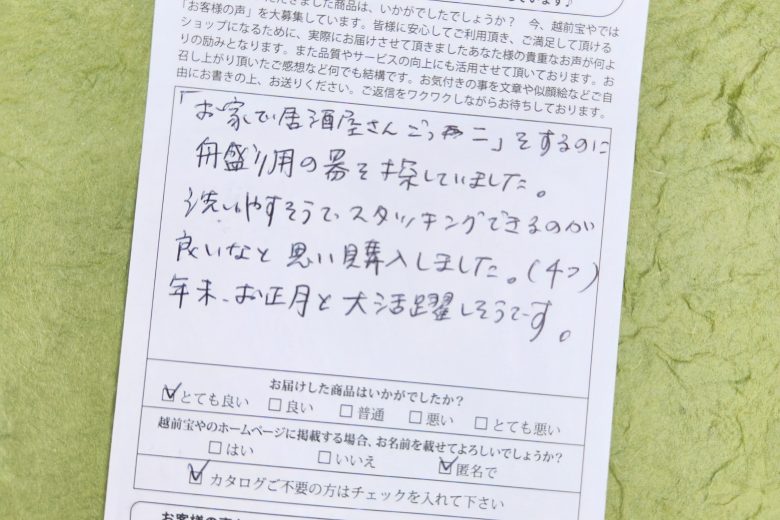 ただきました商品は、いかがでしたでしょうか？ 今、越前宝やでは
「お客様の声」を大募集しています。皆様に安心してご利用頂き、ご満足して頂ける
ショップになるために、実際にお届けさせて頂きましたあなた様の貴重なお声が何よ
りの励みとなります。また品質やサービスの向上にも活用させて頂いております。お
召し上がり頂いたご感想など何でも結構です。お気付きの事を文章や似顔絵などご自
由にお書きの上、お送りください。ご返信をワクワクしながらお待ちしております。
「お家で居酒屋さんごっこ」をするのに
舟盛り用の器を探していました。
洗いやすそうで、スタッキングできるのが
良いなと思い購入しました。(4つ)
年末、お正月と大活躍しそうです。
お届けした商品はいかがでしたか？
☑とても良い □良い □普通 □悪い □とても悪い
越前宝やのホームページに掲載する場合、お名前を載せてよろしいでしょうか？
□はい □いいえ ☑匿名で
☑カタログご不要の方はチェックを入れて下さい